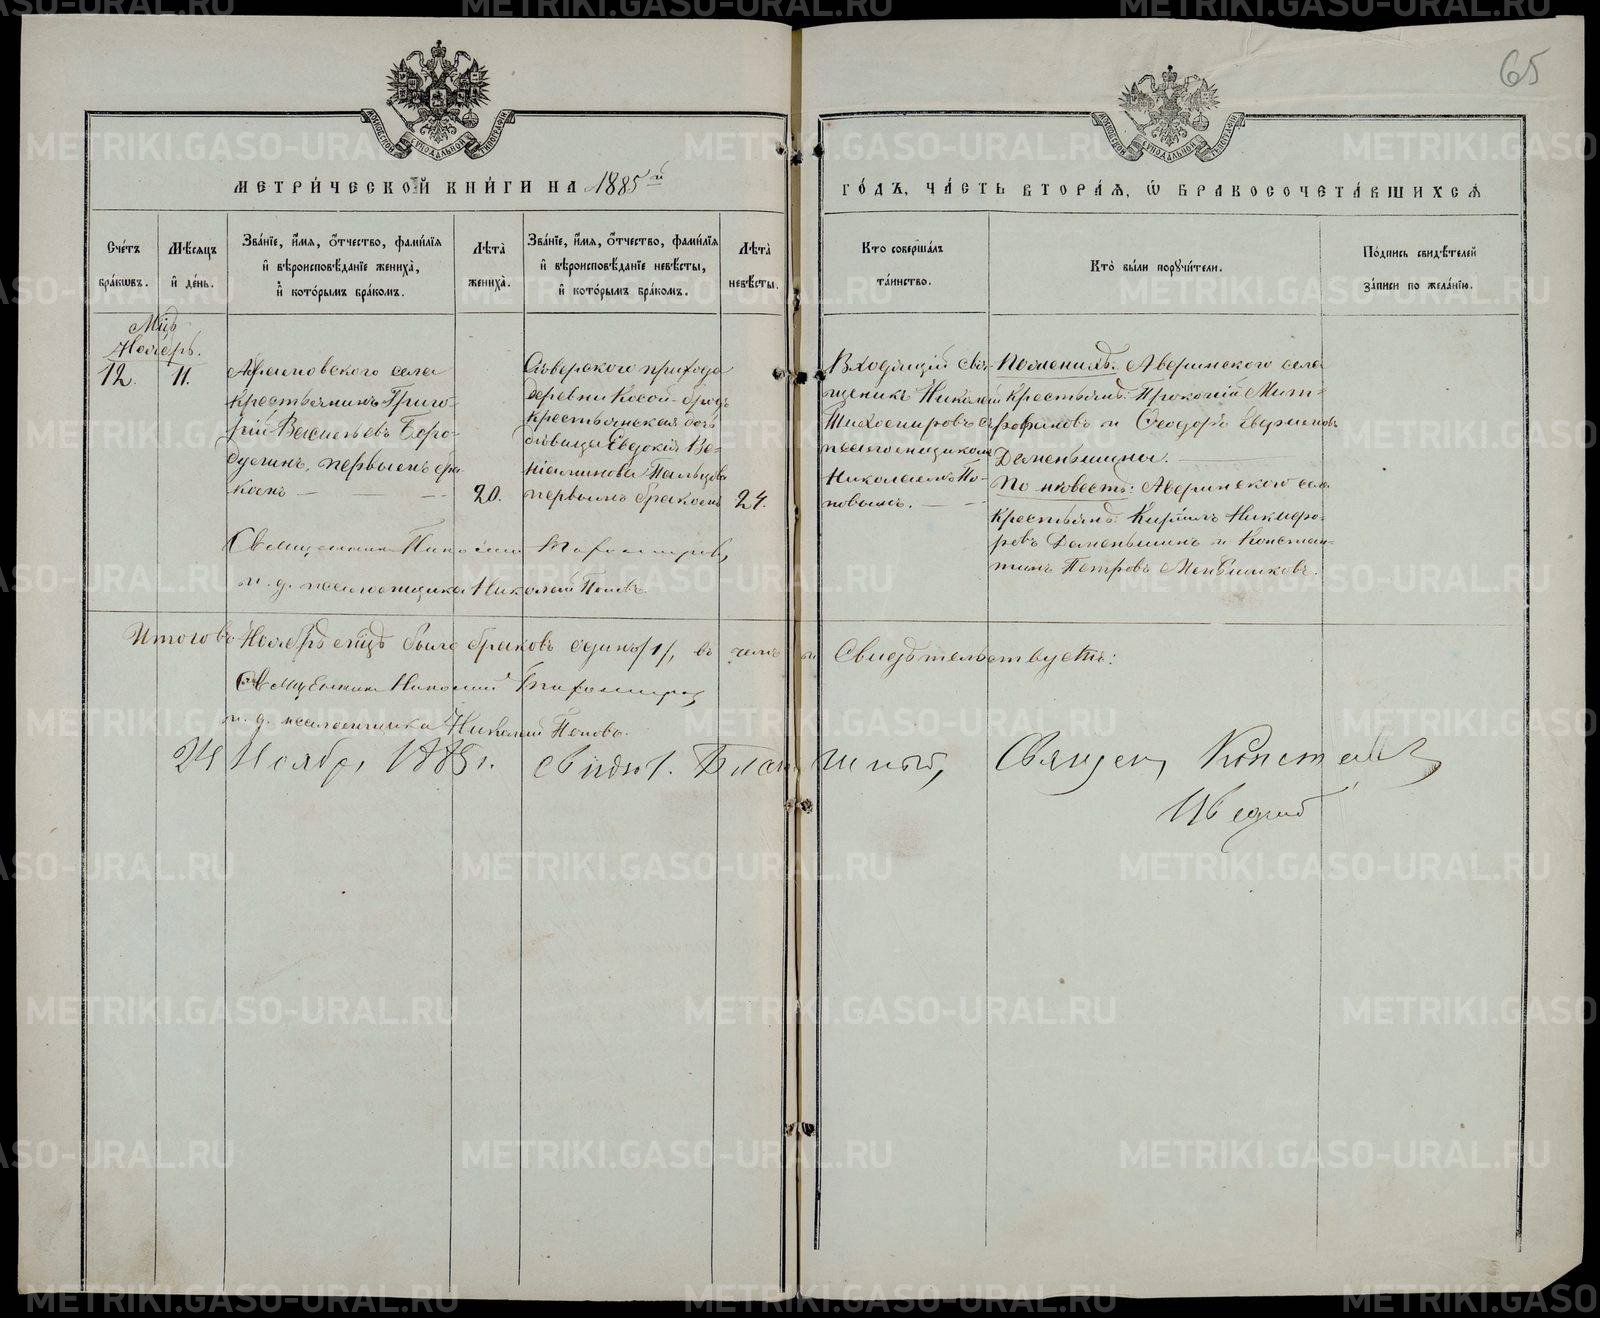 65
МЕТРИ́ЧЕСКОЙ КНИ́ГИ НА 1885й
ГО́ДЪ, ЧА́СТЬ ВТОРА́Я, Ѡ БРАКОСОЧЕТА́ВШИХСЯ
Сче́тъ бра́ковъ.
Мѣ́сяцъ и де́нь.
Зва́нїе, и́мя, о́тчество, фами́лїя
и вѣроисповѣ́данїе жениха̀,
и кото́рымъ бра́комъ.
Лѣ́та жениха̀.
Зва́нїе, и́мя, о́тчество, фами́лїя
и вѣроисповѣ́данїе невѣ́сты,
и кото́рымъ бра́комъ.
Лѣ́та невѣ́сты.
Кто̀ соверша́лъ
та́инство.
Кто̀ бы́ли поручи́тели.
По́дпись свидѣ́телей
за́писи по жела́нїю.
Мцъ
Ноябрь.
12.
11.
села
крестьянинъ Григо-
рій Васильевъ Боро-
дулинъ, первымъ бра-
комъ
20.
прихода
деревни Косой-бродъ
крестьянская дочь
дѣвица Евдокія Ве-
ніаминова
первымъ бракомъ
24.
Входящій свя-
щеникъ Николай
Тихомировъ съ
псаломщикомъ
Николаемъ По-
повымъ.
По женихѣ: Аверинского села
Крестьяне: Прокопій Мит-
рофановъ и Ѳеодоръ
Деменьшины.
По невѣстѣ: Аверинского села
Крестьяне: Кирилъ Никифо-
ровъ Деменьшинъ и Констан-
тинъ Петровъ Меньшиковъ.
Священникъ Николай Тихомировъ,
и. д. псаломщика Николай Поповъ.
Итого въ Ноябрѣ мцѣ было браковъ одинъ /1/, въ чемъ и Свидѣтельствуемъ:
Священникъ Николай Тихомировъ
и. д. псаломщика Николай Поповъ.
24 Ноябр, 1885 г. Благочинный, Священ,